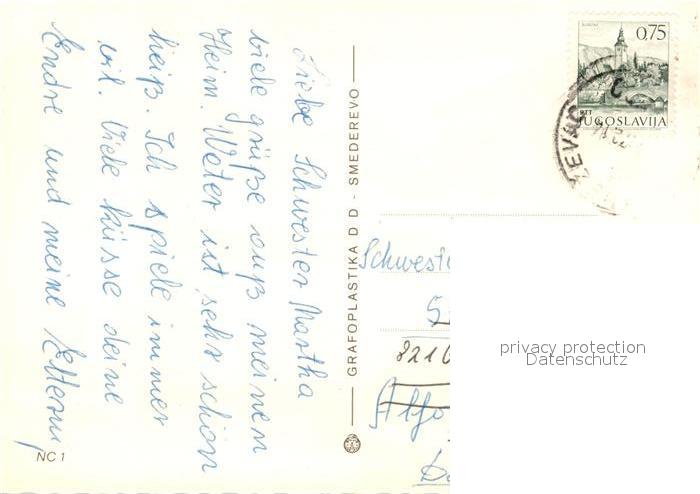 Liebe Schwester Martha
viele grüße auß meinen
Heim. Weter ist sehr schön
heiß. Ich spiele immer
vil. Viele küsse deine
Endre und meine Eltern
NC 1
GRAFOPLASTIKA D D - SMEDEREVO
0,75
PTT
JUGOSLAVIJA
ZEVAC
Schwest
8216
Alfo
privacy protection
Datenschutz